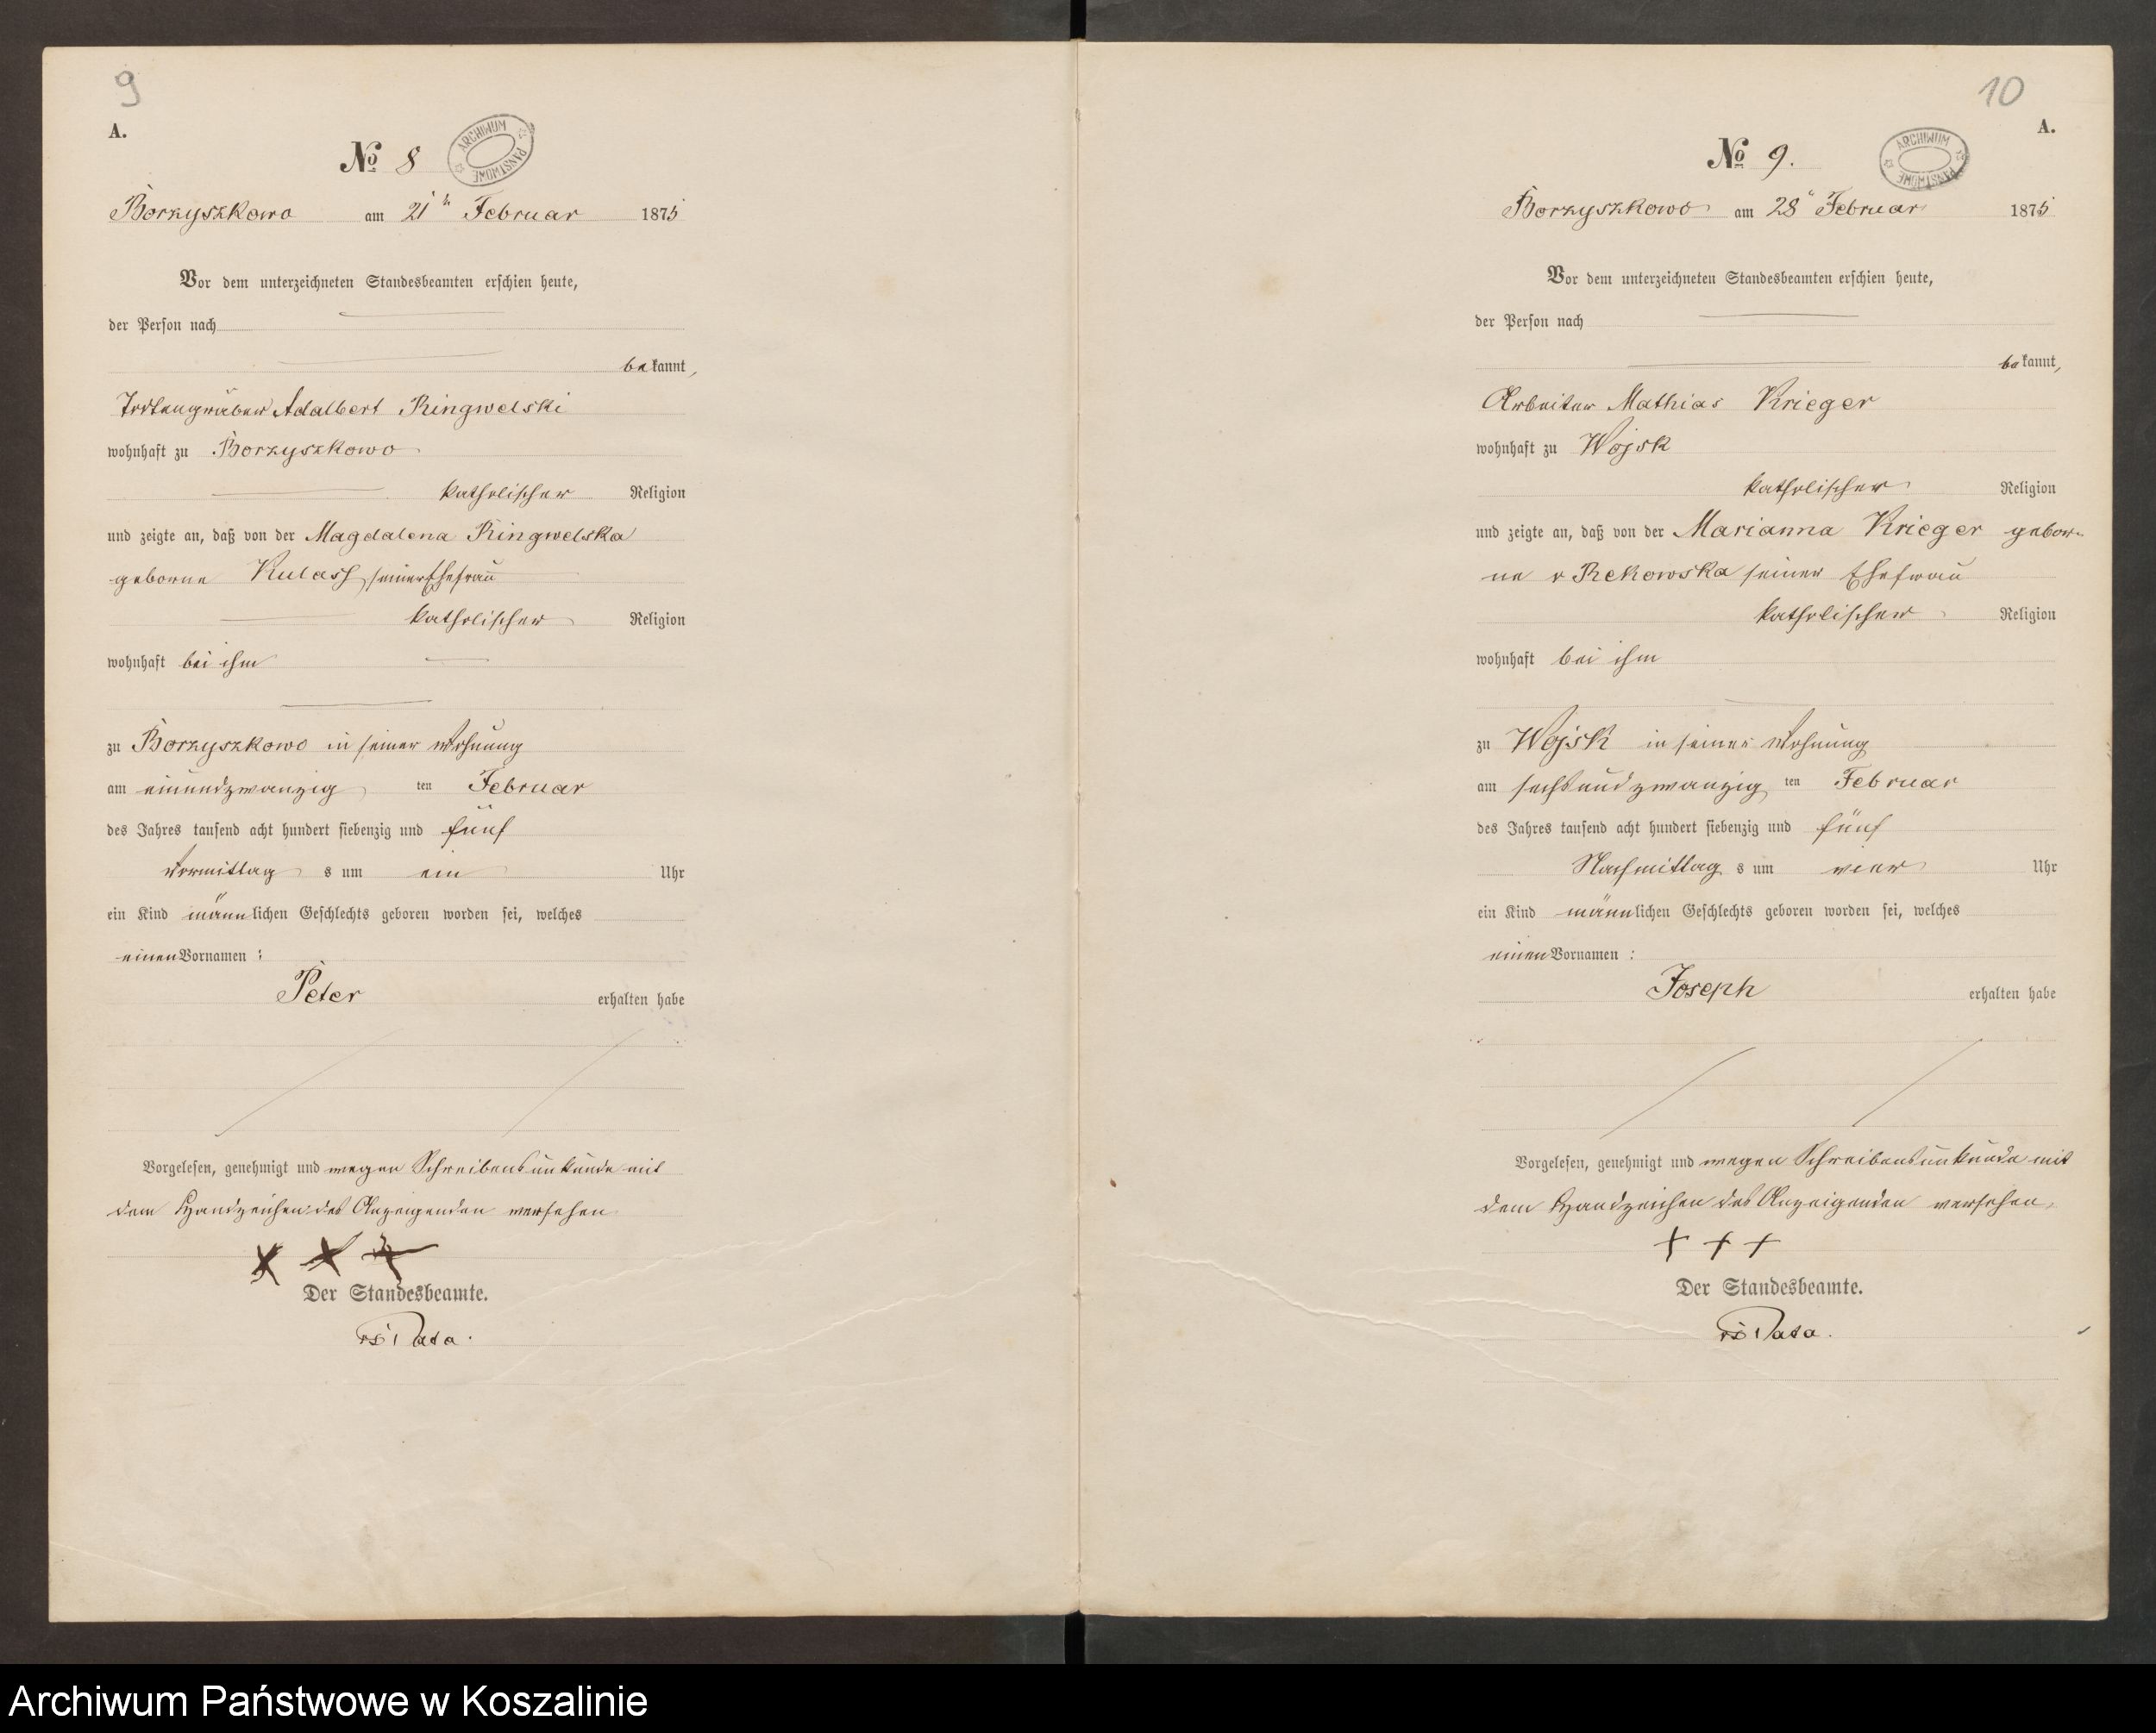 9
A.
No 8
ARCHIWUM PAŃSTWOWE
Borzyszkowo am 21 Februar 1875
Vor dem unterzeichneten Standesbeamten erschien heute,
der Person nach
bekannt,
Todtengräber Adalbert Ringwelski
wohnhaft zu Borzyszkowo
katholischer Religion
und zeigte an, daß von der Magdalena Ringwelska
geborne Kulass seiner Ehefrau
katholischer Religion
wohnhaft bei ihm
zu Borzyszkowo in seiner Wohnung
am einundzwanzig ten Februar
des Jahres tausend acht hundert siebenzig und fünf
Vormittag s um ein Uhr
ein Kind männlichen Geschlechts geboren worden sei, welches
einen Vornamen :
Peter erhalten habe
Vorgelesen, genehmigt und wegen Schreibensunkunde mit
dem Handzeichen des Anzeigenden versehen
Der Standesbeamte.
10
A.
No 9.
ARCHIWUM PAŃSTWOWE
Borzyszkowo am 28 Februar 1875
Vor dem unterzeichneten Standesbeamten erschien heute,
der Person nach
bekannt,
Arbeiter Mathias Krieger
wohnhaft zu Wojsk
katholischer Religion
und zeigte an, daß von der Marianna Krieger gebor-
ne v Rekowska seiner Ehefrau
katholischer Religion
wohnhaft bei ihm
zu Wojsk in seiner Wohnung
am sechsundzwanzig ten Februar
des Jahres tausend acht hundert siebenzig und fünf
Nachmittag s um vier Uhr
ein Kind männlichen Geschlechts geboren worden sei, welches
einen Vornamen :
Joseph erhalten habe
Vorgelesen, genehmigt und wegen Schreibensunkunde mit
dem Handzeichen des Anzeigenden versehen,
+ + +
Der Standesbeamte.
Archiwum Państwowe w Koszalinie